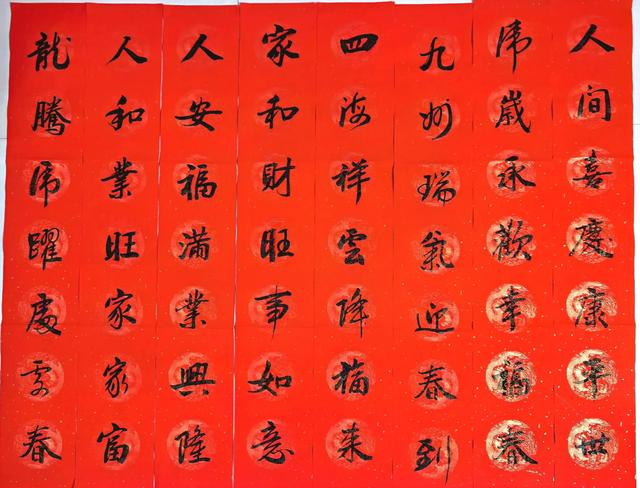 人間喜慶康平世
虎歲承歡幸福春
九州瑞氣迎春到
四海祥雲降福来
家和財旺事如意
人安福滿業興隆
人和業旺家家富
龍騰虎躍處處春